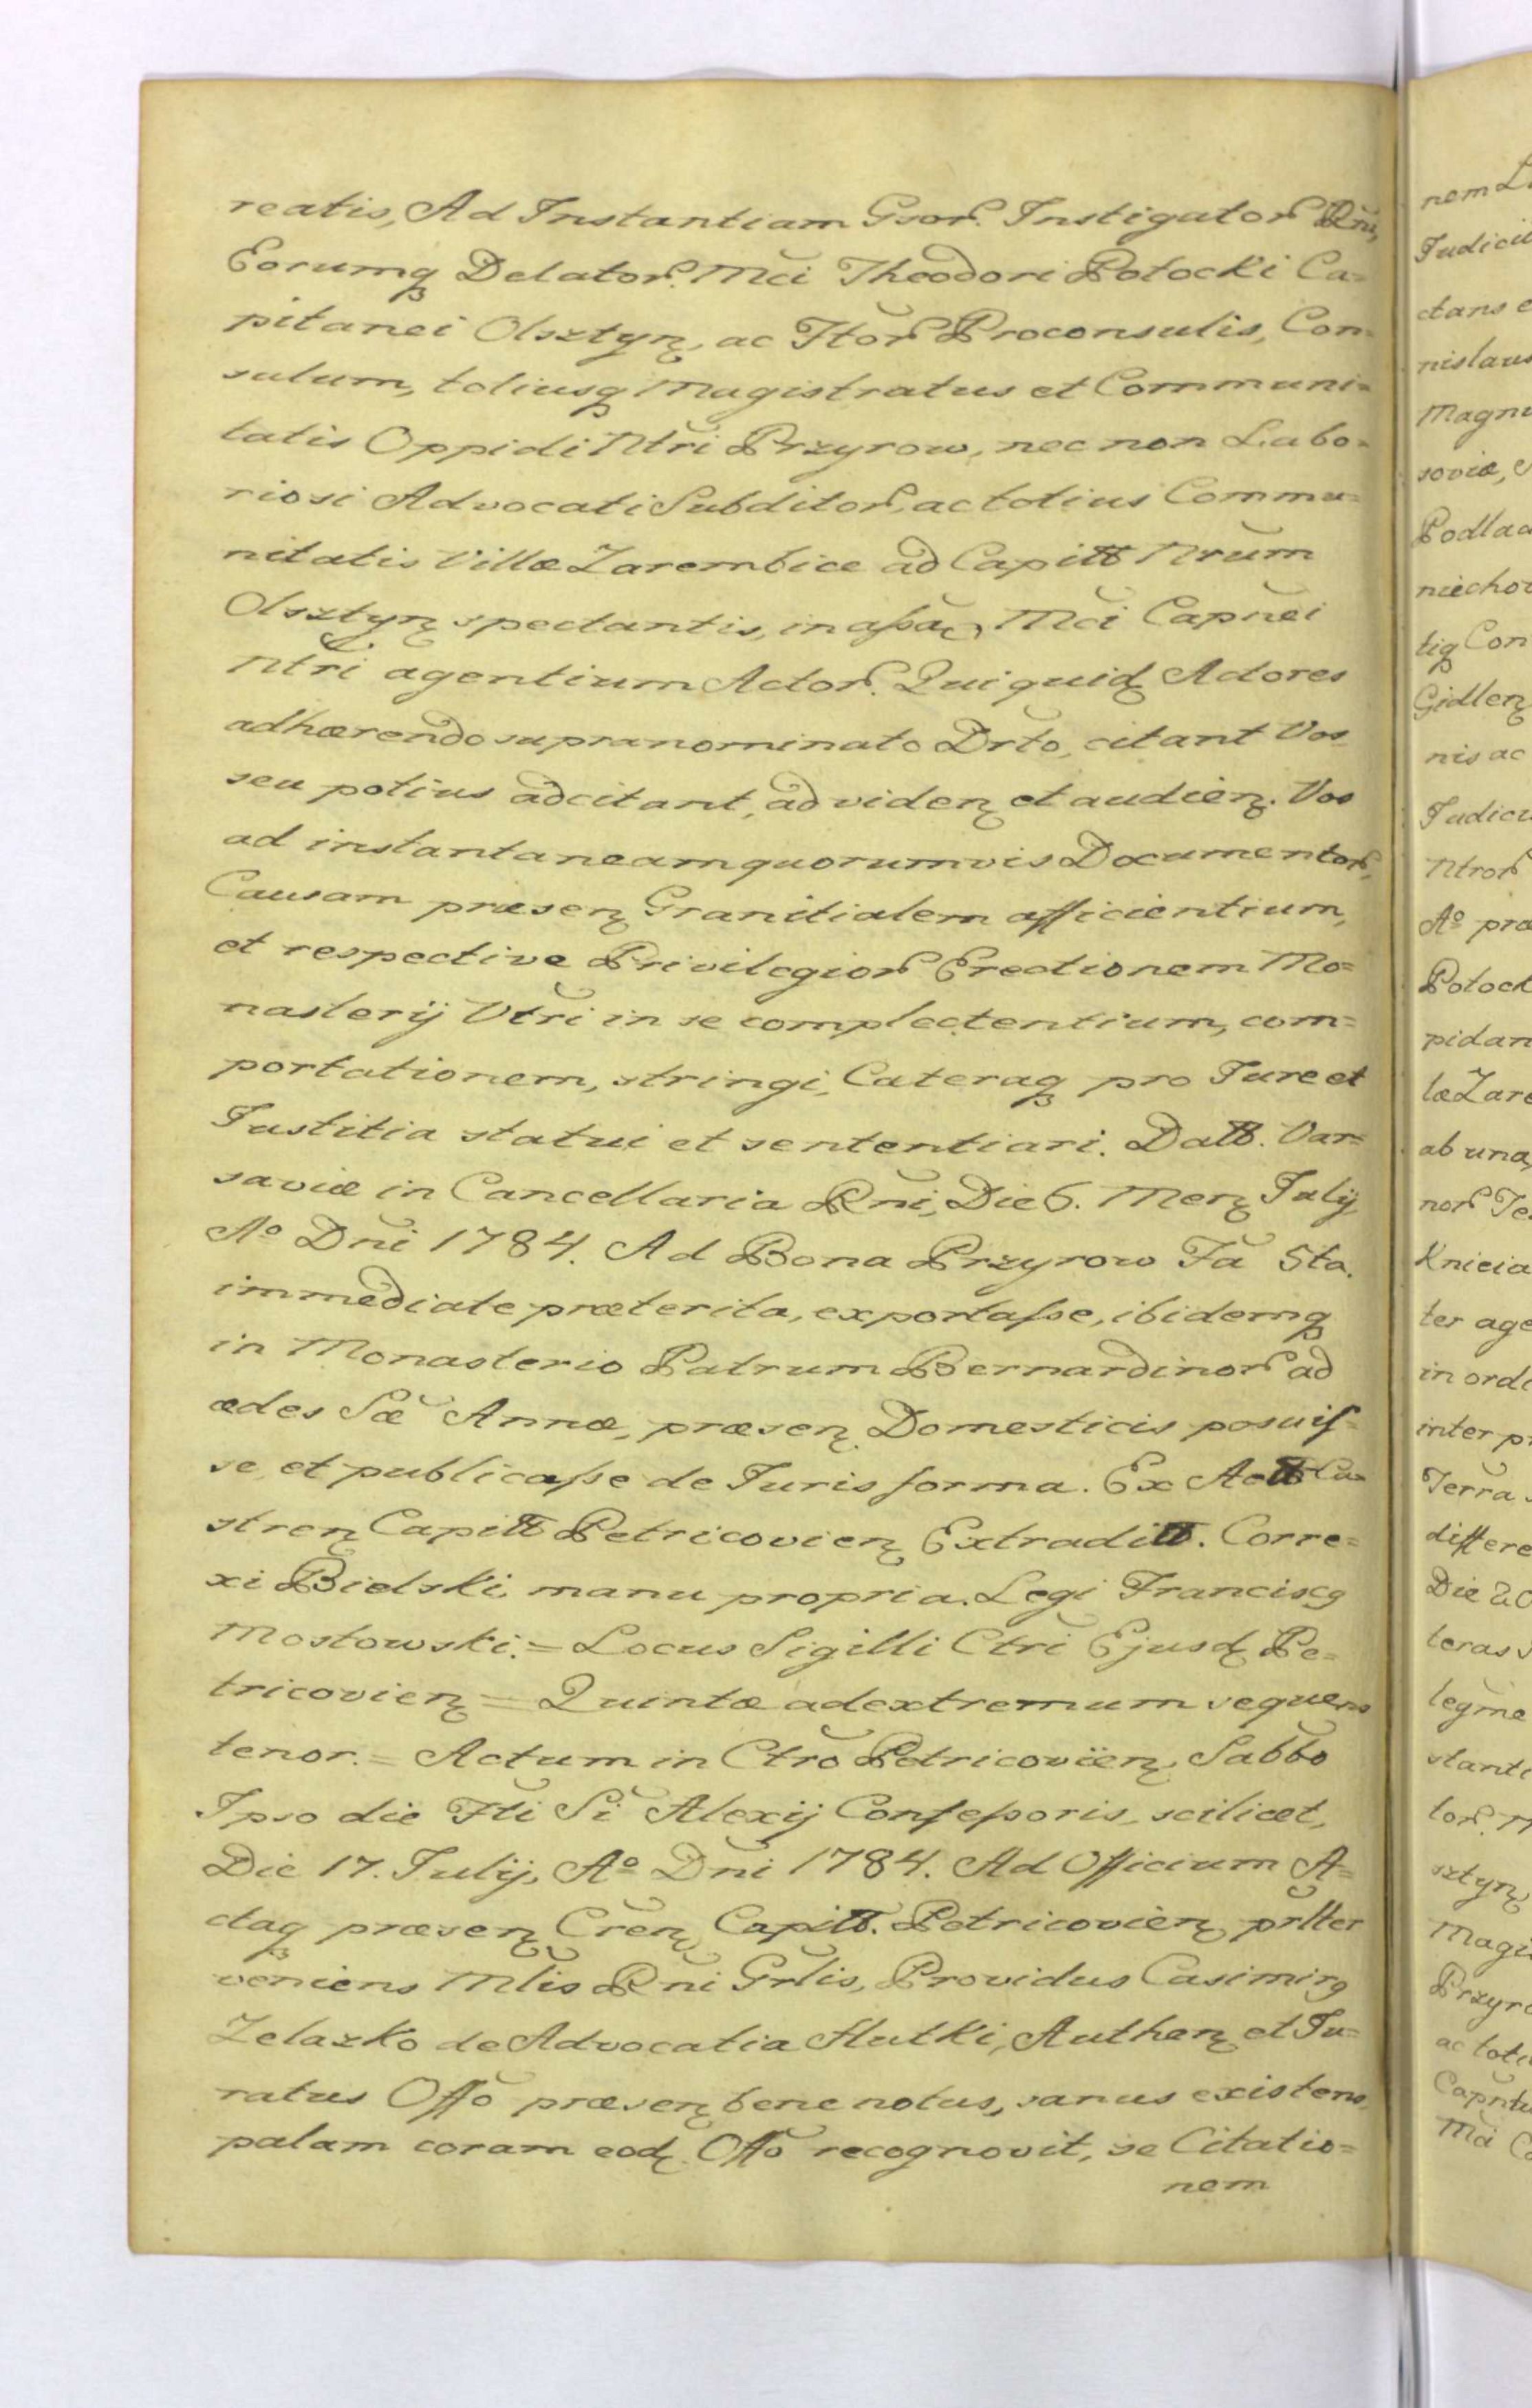 reatis, Ad Instantiam Gsor. Instigator Rni,
Eorumq Delator. Mci Theodori Potocki Ca=
pitanei Olsztyn, ac Ftor Proconsulis, Con=
sulum, totiusq Magistratus et Communi=
tatis Oppidi Ntri Przyrow, nec non Labo=
riosi Advocati Subditor, ac totius Commu=
nitatis Villæ Zarembice ad Capitt Nrum
Olsztyn spectantis, in Mci Capnei
Ntri agentium Actor. Qui quid Actores
adhærendo supranominato Drto, citant Vos
seu potius adcitant, ad viden et audien. Vos
ad instantaneam quorumvis Documentor,
Causam præsen Granitialem afficientium,
et respective Privilegior Erectionem Mo=
nasterij Vtri in se complectentium, com=
portationem, stringi, Cateraq pro Jure et
Justitia statui et sententiari. Datt. Var=
saviæ in Cancellaria Rni, Die 6. Men Julij
Ao Dni 1784. Ad Bona Przyrow Fa 5ta.
immediate præterita, exportasse, ibidemq
in Monasterio Patrum Bernardinor ad
ædes Sæ Annæ, præsen Domesticis posuis=
se, et publicasse de Juris forma. Ex Actt Ca=
stren Capitt Petricovien Extraditt. Corre=
xi Bielski manu propria. Legi Franciscq
Mostowski. = Locus Sigilli Ctri Ejusd Pe=
tricovien = Quintæ ad extremum sequens
tenor. = Actum in Ctro Petricovien, Sabbo
Ipso die Fti Si Alexij Confessoris, scilicet,
Die 17. Julij, Ao Dni 1784. Ad Officium A=
ctaq præsen Cren Capitt. Petricovien prltter
veniens Mlis Rni Grlis, Providus Casimirq
Zelazko de Advocatia Hutki, Authen et Ju=
ratus Offo præsen bene notus, sanus existens
palam coram eod. Offo recognovit, se Citatio=
nem
nem
Judicii
ctans e
nislaus
Magni
soviæ, e
Podlac
niechor
tiq Con
Gidlen
nis ac
Judici
Ntror
Ao præ
Potock
pidan
læ Zare
ab una,
nor Te
Kniecia
ter age
in ordi
inter pr
Terra
differe
Die 20
teras
legme
stanti
tor. M
sztyn
Magi
Przyro
ac toti
Capntu
Mci Ca